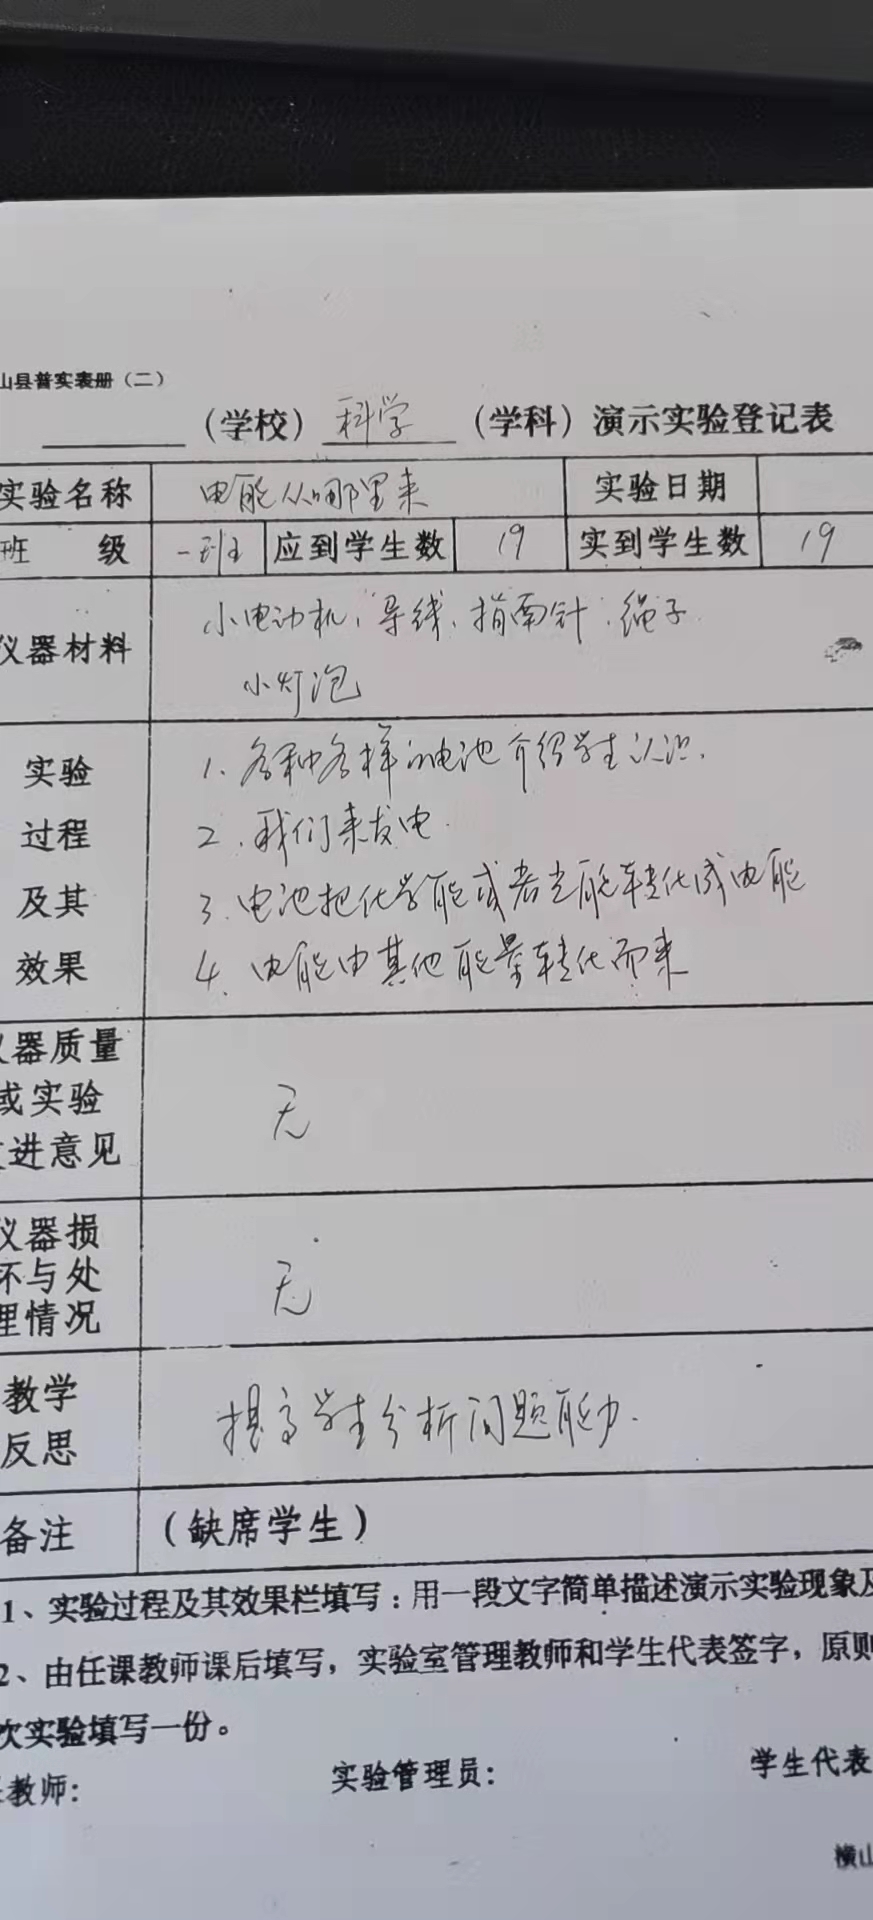 山县普实表册（二）
（学校）科学（学科）演示实验登记表
实验名称 电能从哪里来 实验日期
班 级 一班 应到学生数 19 实到学生数 19
仪器材料 小电动机、导线、指南针、绳子
小灯泡
实验 1、各种各样的电池介绍学生认识.
过程 2、我们来发电.
及其 3、电池把化学能或者光能转化成电能
效果 4、电能由其他能量转化而来
仪器质量
或实验 无
进意见
仪器损
坏与处 无
理情况
教学
反思 提高学生分析问题能力.
备注 （缺席学生）
1、实验过程及其效果栏填写：用一段文字简单描述演示实验现象及
2、由任课教师课后填写，实验室管理教师和学生代表签字，原则
次实验填写一份。
教师： 实验管理员： 学生代表
横山